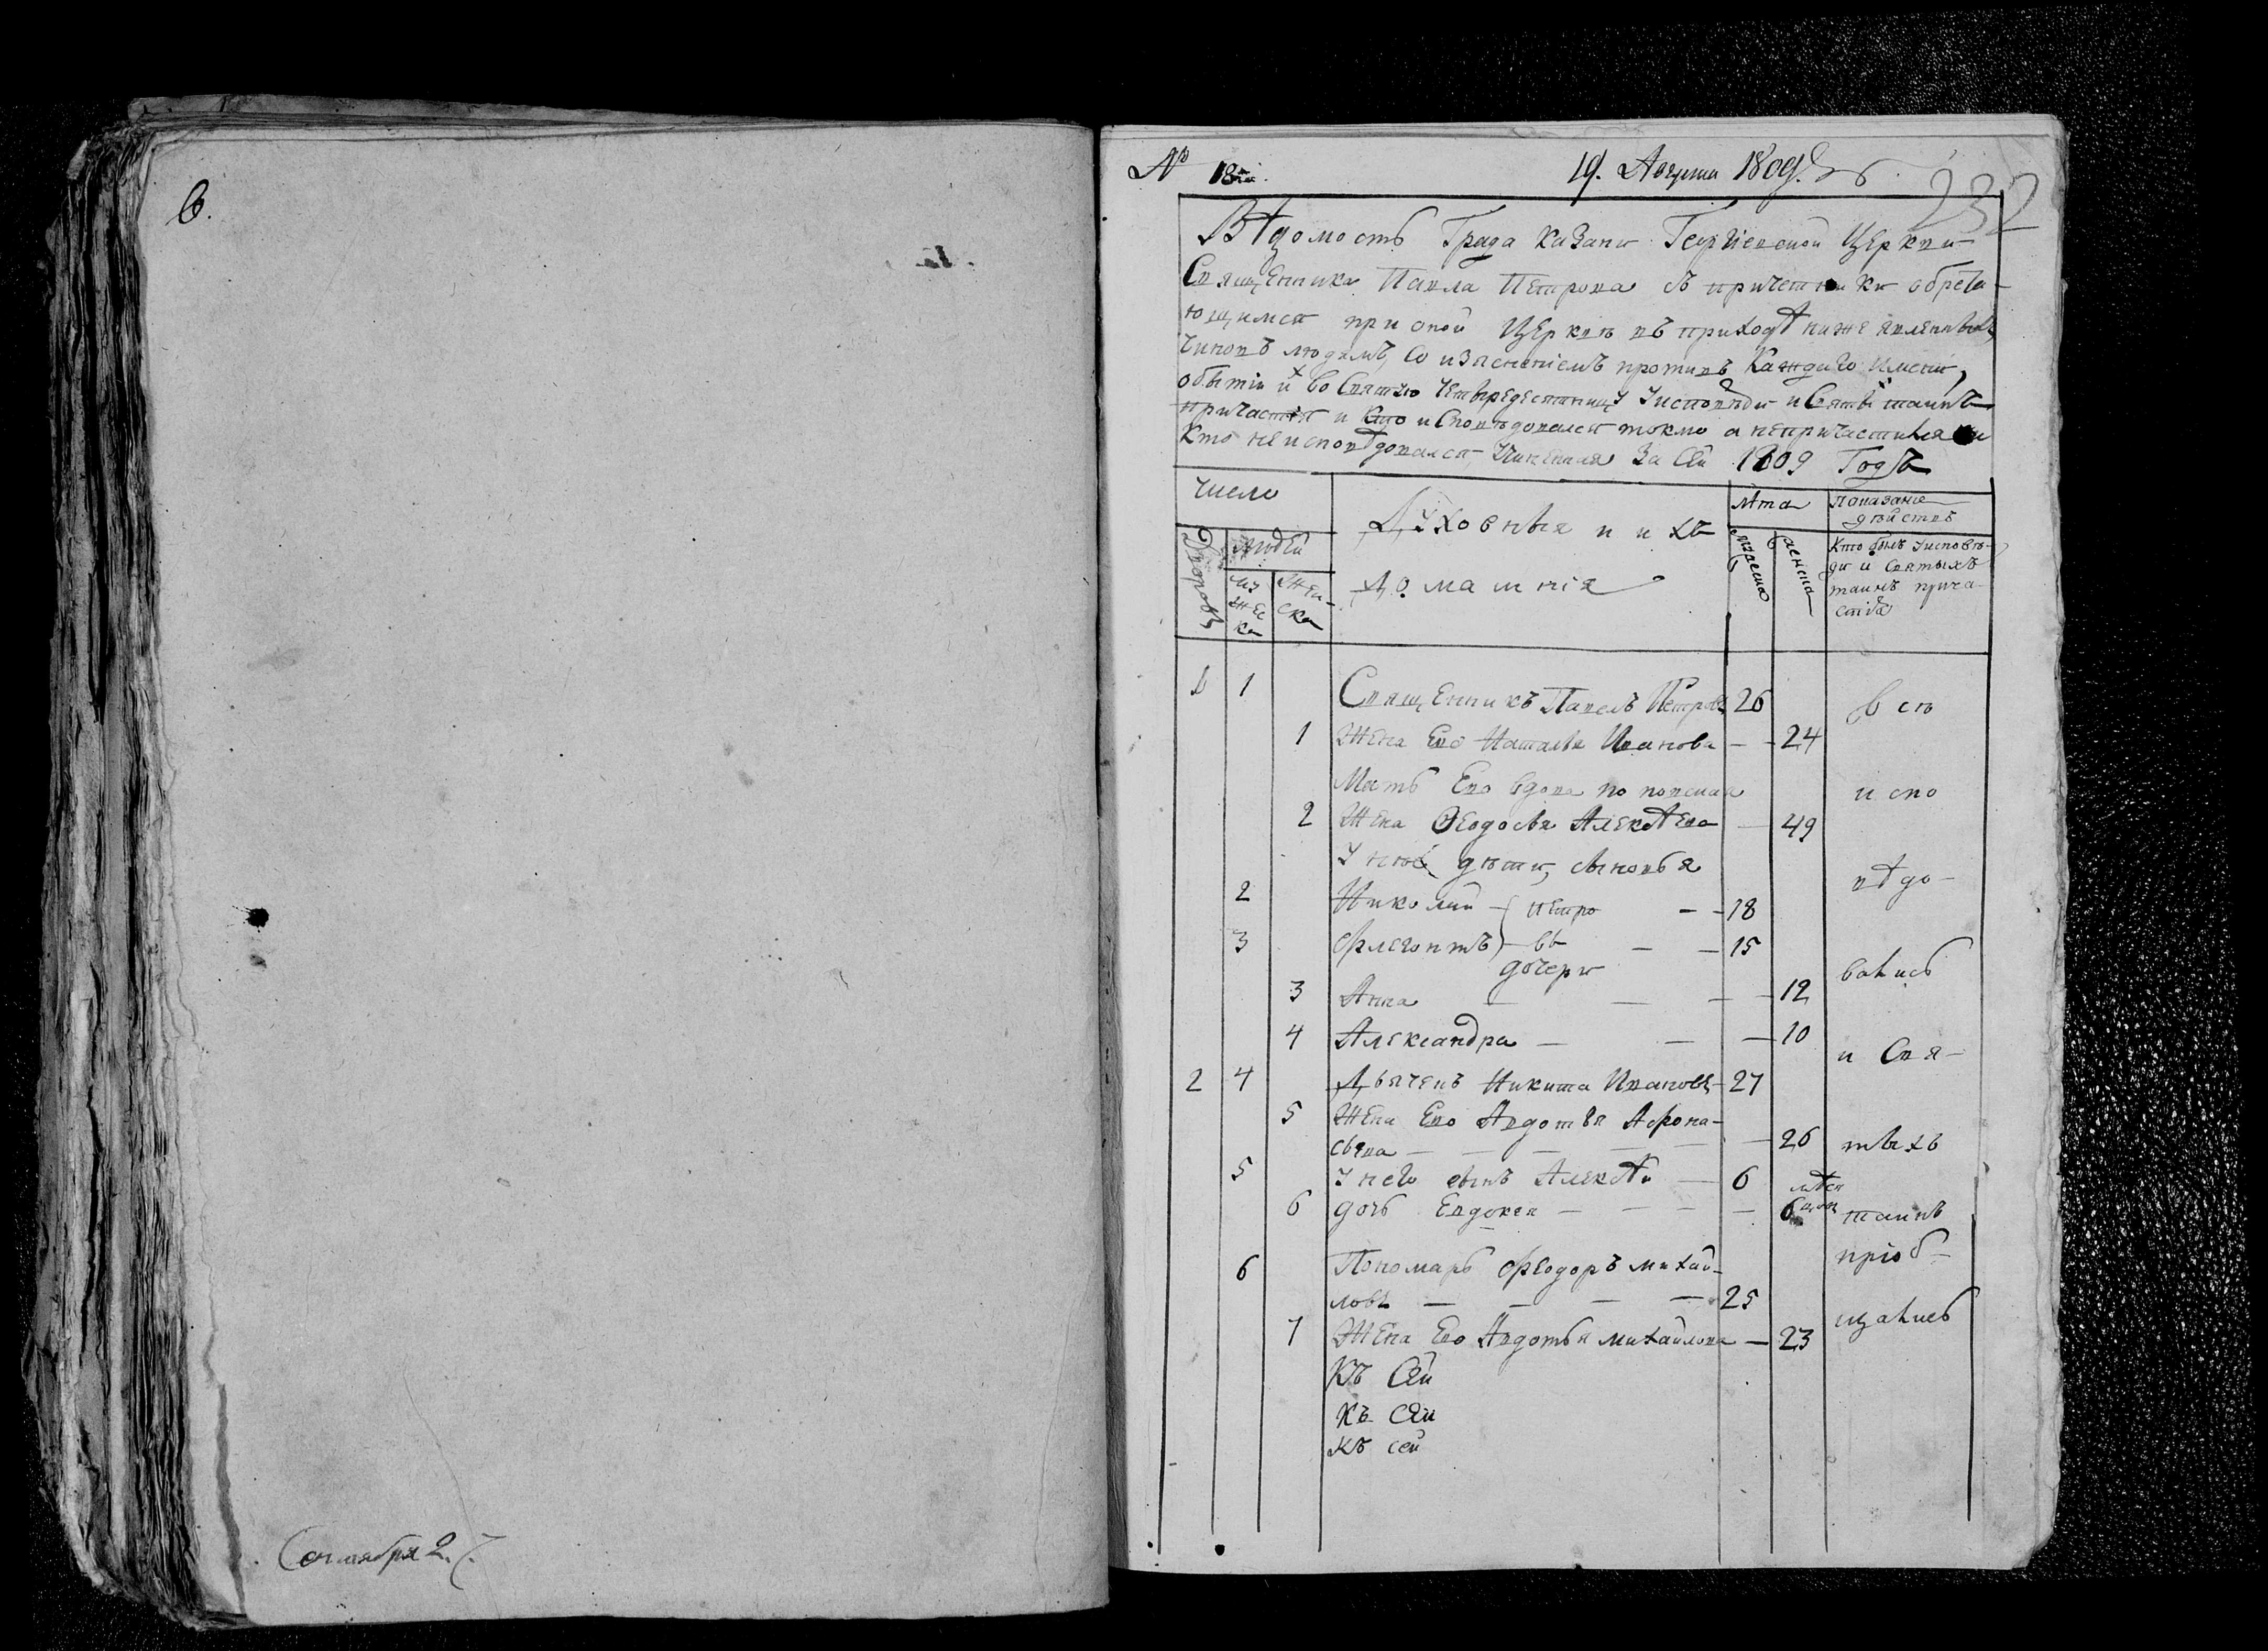 6.
Сентября 2.
№ 18й.
19. Августа 1809.
232
Вѣдомость Града Казани Георгіевской Церкви
Священника Павла Петрова съ причетники обрета-
ющимся при оной Церкви въ приходѣ ниже явленныхъ
чиновъ людямъ, со изъясненіемъ противъ Каждаго имени,
о бытіи их во Святую четыредесятницу У исповѣди и Святыхъ таинъ
причастия и Кто исповѣдовался токмо а непричастился и
Кто не исповѣдовался, Учиненная За Сей 1809 Годъ
число
Лѣта
Показание
дѣйствъ
Дворовъ
людей
Мужеска
Женска
Духовныя и ихъ
домашнія
мужеска
женска
Кто былъ У исповѣ-
ди и Святыхъ
таинъ прича-
стія
1 1 Священникъ Павелъ Петровъ 26
1 Жена Его Наталья Иванова — 24
Мать Его вдова по
2 Жена Феодосья Алексѣева — 49
У нее дѣти, сыновья
2 Николай Петро — — 18
3 Флегонтъ вы — — 15
дочери
3 Анна — — — 12
4 Александра — — — 10
2 4 Дьячекъ Никита Ивановъ — 27
5 Жена Его Авдотья Афона-
сьева — — — — 26
5 У него сынъ Алексѣй — 6
6 дочь Евдокея — — — — 6 мѣсяцовъ
6 Пономарь Феодоръ михай-
ловъ — — — — 25
7 Жена Его Авдотья михайлова — 23
Къ Сей
Къ Сей
Къ сей
всѣ
испо
вѣдо-
вались
и Свя-
тыхъ
таинъ
пріоб-
щались